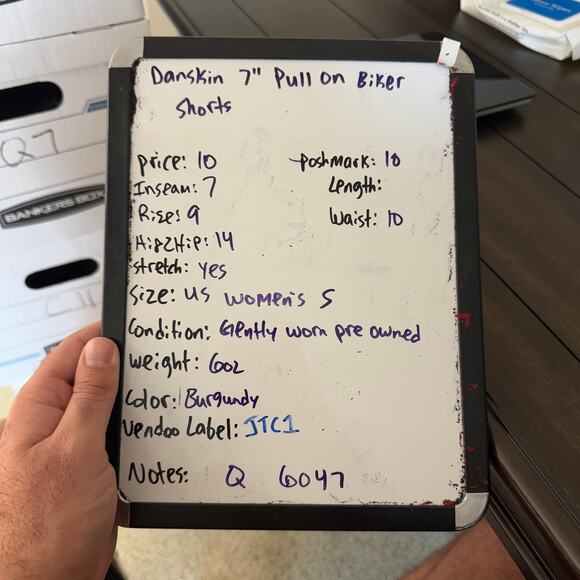 Danskin 7" Pull On Biker
Shorts
Price: 10
Poshmark: 10
Inseam: 7
Length:
Rise: 9
Waist: 10
Hip2Hip: 14
Stretch: yes
Size: US Women's S
Condition: Gently worn pre owned
Weight: 6oz
Color: Burgundy
Vendoo Label: JTC1
Notes: Q 6047
Q7
BANKERS BOX